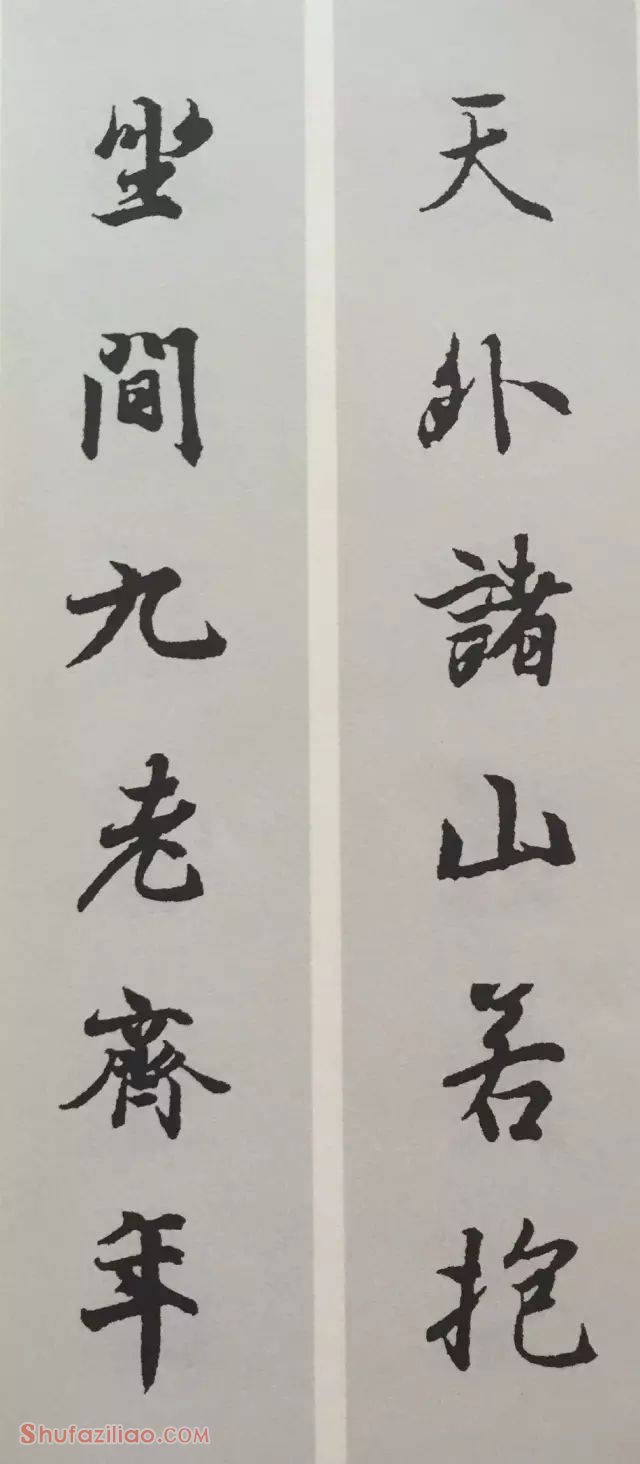 天外諸山若抱
坐間九老齊年
Shufaziliao.com